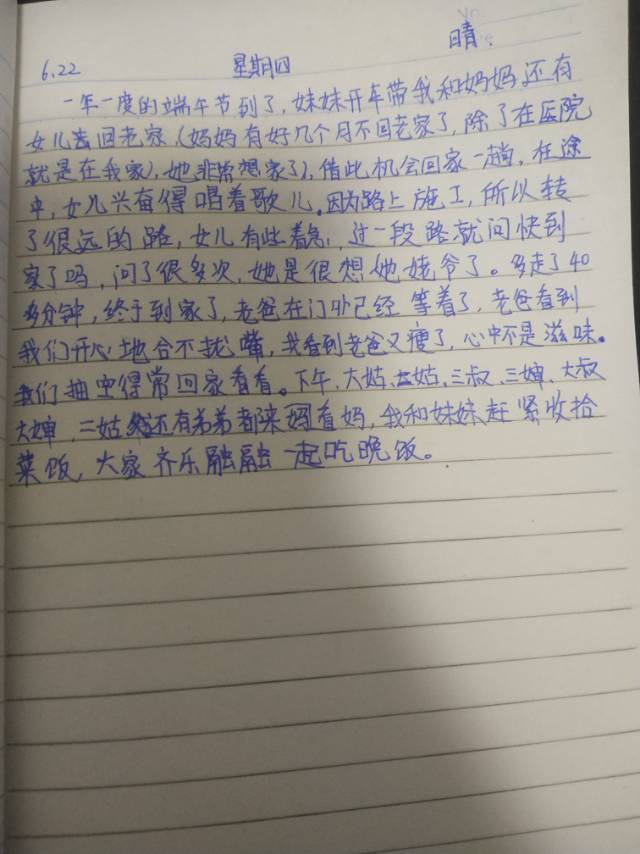 6.22 星期四 晴.
一年一度的端午节到了,妹妹开车带我和妈妈还有
女儿去回老家(妈妈有好几个月不回老家了,除了在医院
就是在我家),她非常想家了),借此机会回家一趟,在途
中,女儿兴奋得唱着歌儿。因为路上施工,所以转
了很远的路,女儿有些着急,过一段路就问快到
家了吗,问了很多次,她是很想她姥爷了。多走了40
多分钟,终于到家了,老爸在门外已经等着了,老爸看到
我们开心地合不拢嘴,我看到老爸又瘦了,心中不是滋味。
我们抽空得常回家看看。下午,大姑、姑、三叔、三婶、大叔
大婶、二姑还有弟弟都来妈看妈,我和妹妹赶紧收拾
菜饭,大家齐乐融融一起吃晚饭。